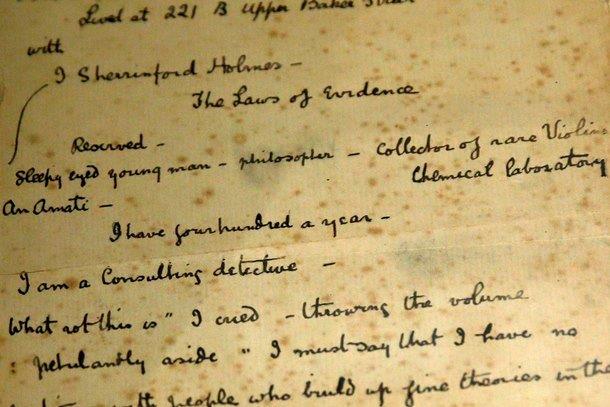 Lived at 221 B Upper Baker Street
with
I Sherrinford Holmes –
The Laws of Evidence
Reserved –
Sleepy eyed young man – philosopher – Collector of rare Violins
An Amati – Chemical laboratory
I have four hundred a year –
I am a Consulting detective –
What rot this is" I cried – throwing the volume
: petulantly aside " I must say that I have no
with people who build up fine theories in the